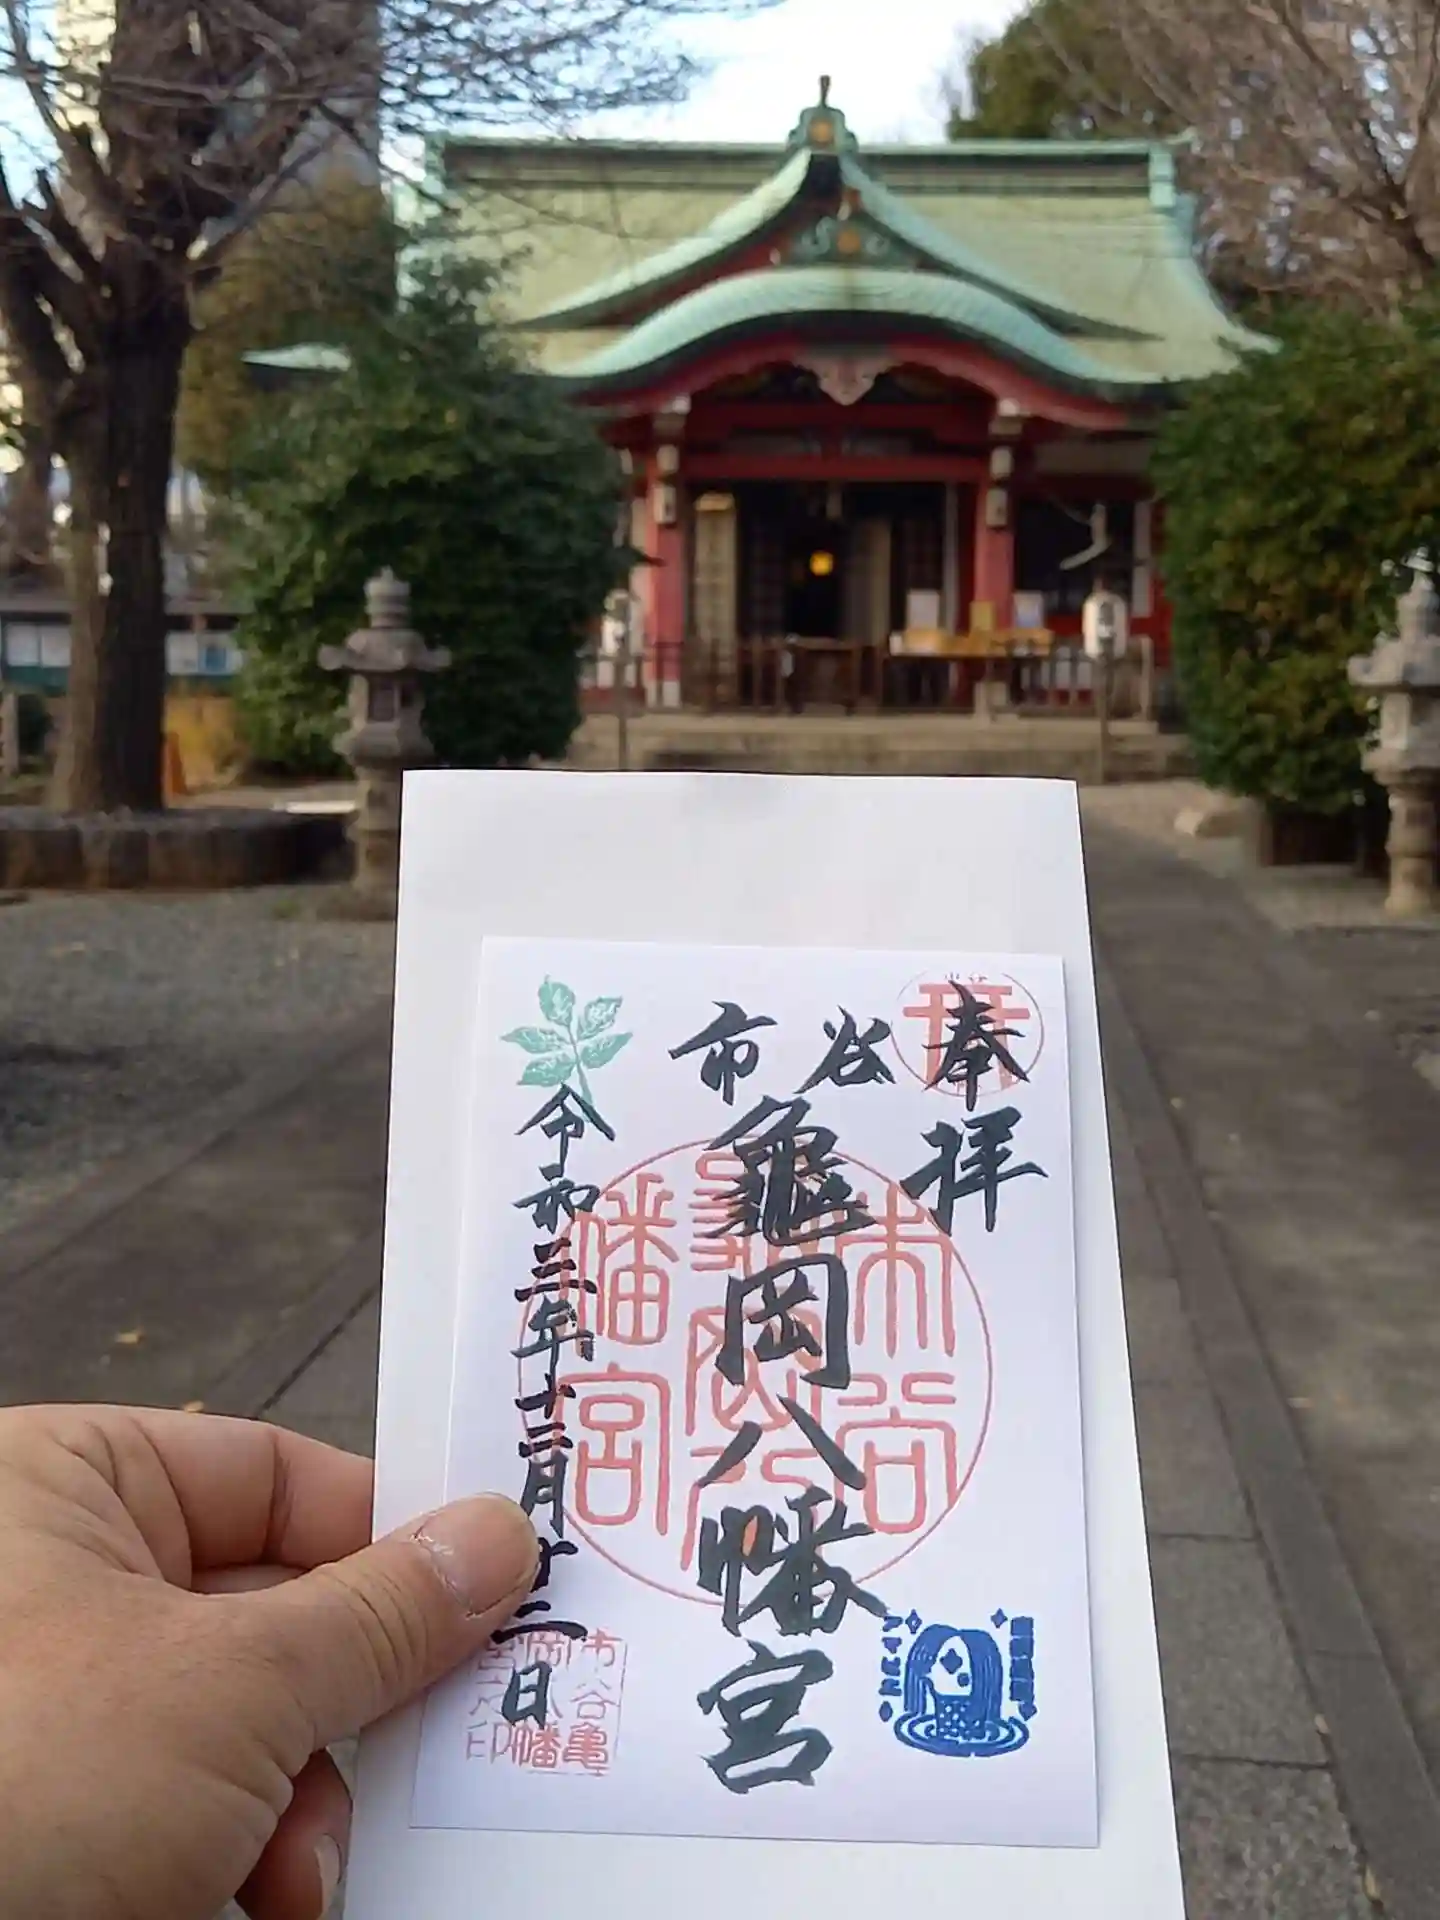 奉拝
市谷
亀岡八幡宮
令和三年十二月廿二日
市谷
亀岡八
幡宮
市谷亀
岡八幡
宮之印
アマビエ